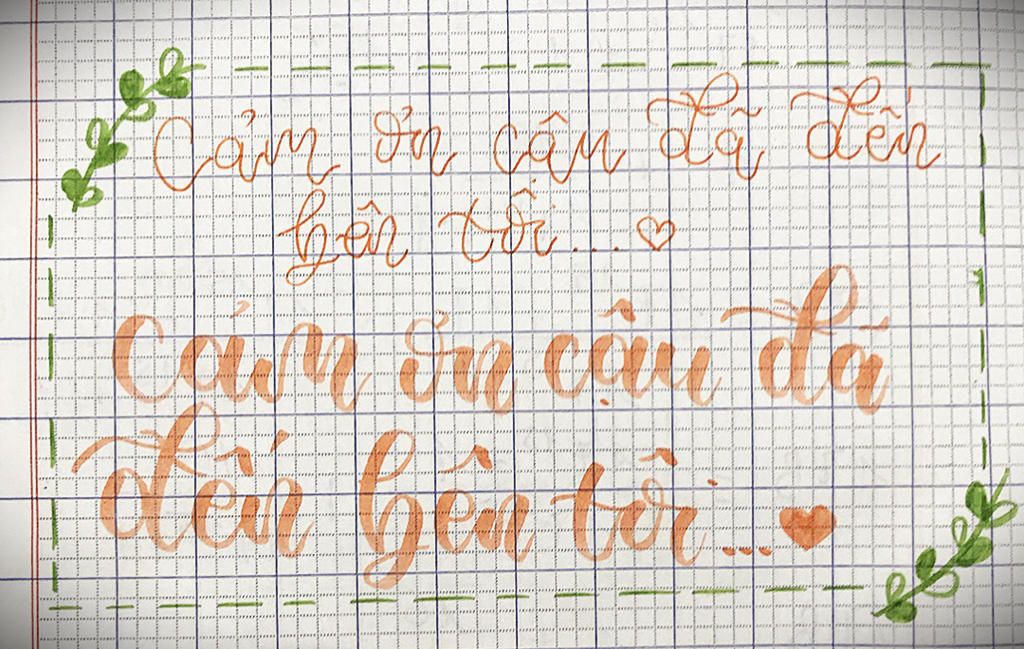 Cảm ơn cậu đã đến
bên tôi... ♡
Cảm ơn cậu đã
đến bên tôi... ♥